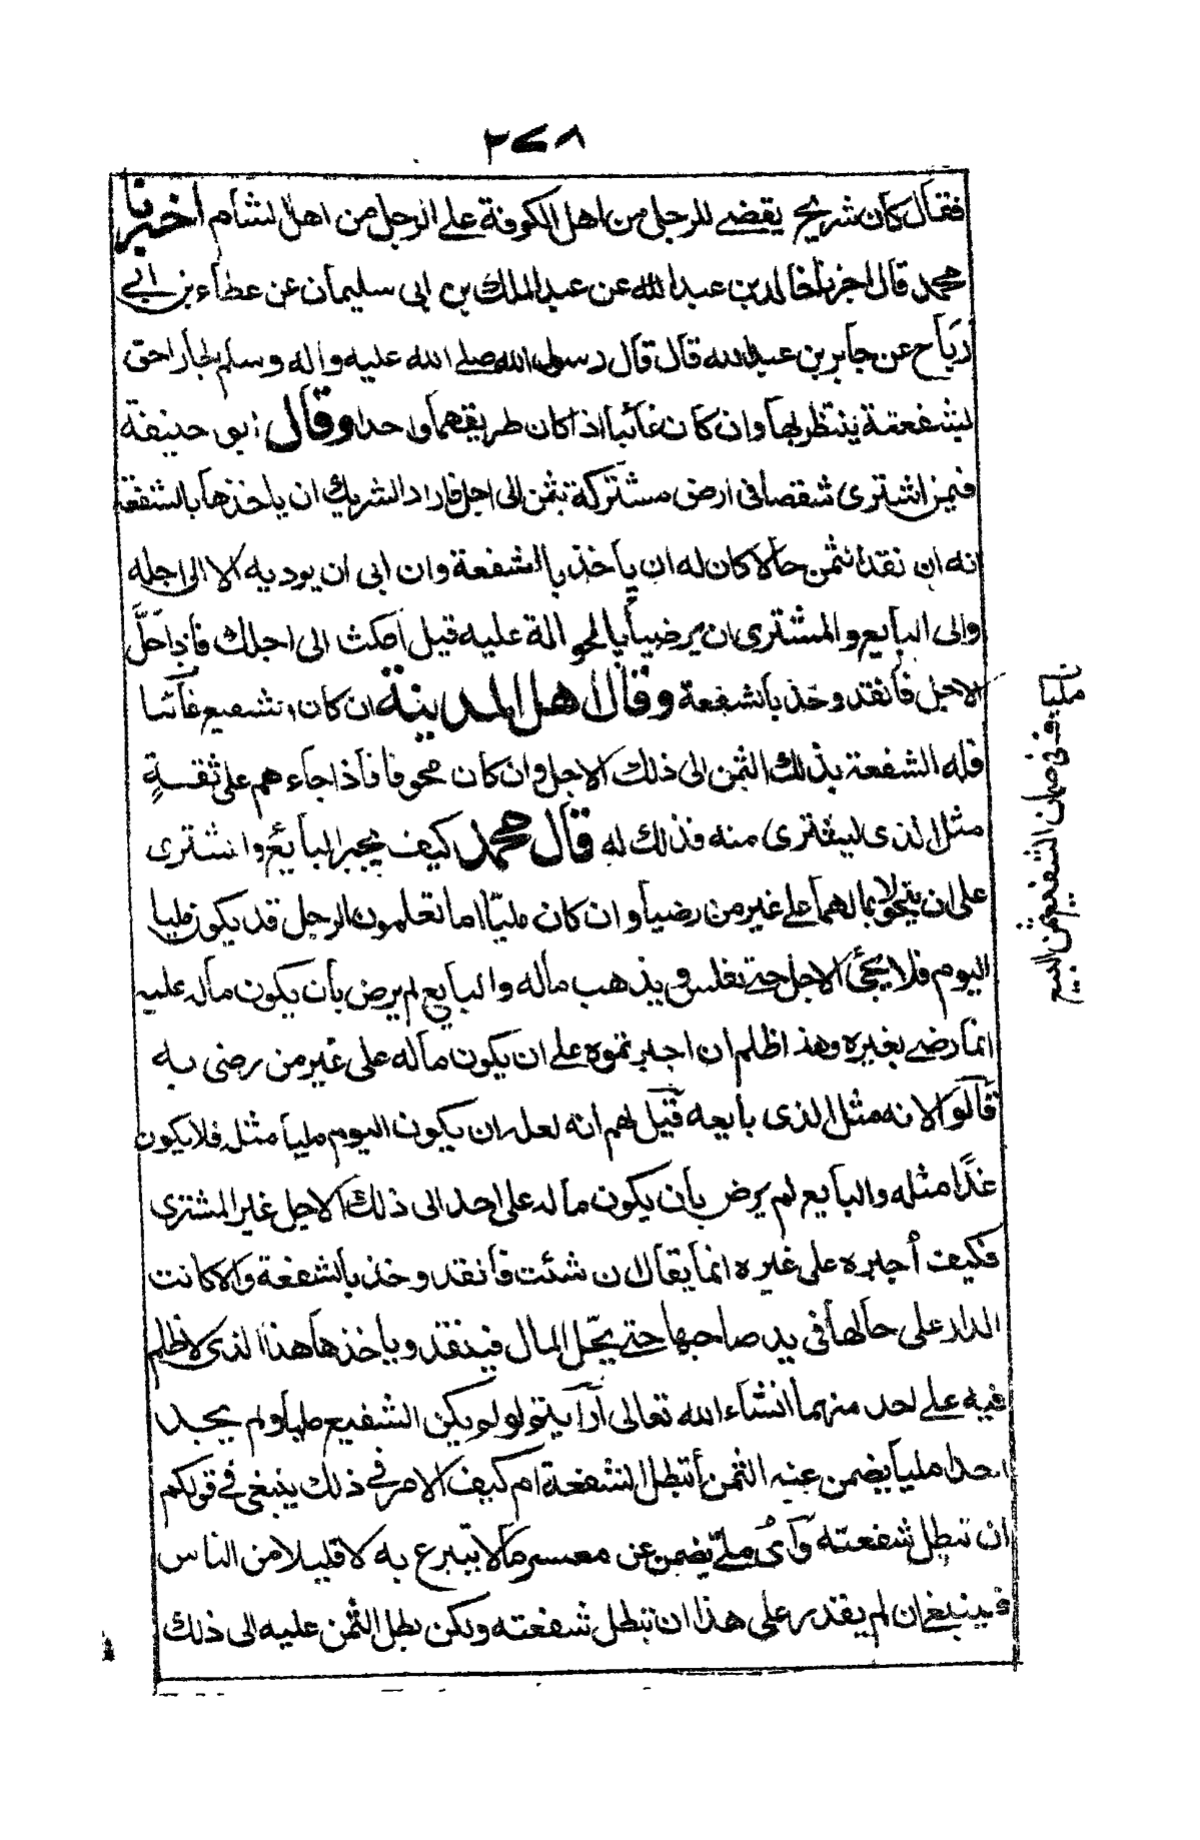 ٢٧٨
فقال كان شريح يقضي للرجل من اهل الكوفة على الرجل من اهل الشام اخبرنا
محمد قال اخبرنا خالد بن عبد الله عن عبد الملك بن ابى سليمان عن عطاء بن ابي
رباح عن جابر بن عبد الله قال قال رسول الله صلى الله عليه واله وسلم الجار احق
بشفعته ينتظر بها وان كان غائبا اذا كان طريقهما واحدا وقال ابو حنيفة
فيمن اشترى شقصا فى ارض مشتركة بثمن الى اجل فاراد الشريك ان ياخذها بالشفعة
انه ان نقد الثمن حالا كان له ان ياخذ بالشفعة وان ابى ان يوديه الا الى اجله
وابى البايع والمشترى ان يرضيا بالحوالة عليه قيل امكث الى اجلك فاذا حلّ
الاجل فانقد وخذ بالشفعة وقال اهل المدينة ان كان الشفيع غائبا
فله الشفعة بذلك الثمن الى ذلك الاجل وان كان مخوفا فاذا جاءهم على ثقةٍ
مثل الذى ليشترى منه فذلك له قال محمد كيف يجبر البايع والمشترى
على ان يتحولا بمالهما على غير من رضيا وان كان مليّا اما تعلمون الرجل قد يكون مليا
اليوم فلا يجئ الاجل حتى يفلس ويذهب ماله والبايع لم يرض بان يكون ماله عليه
انما رضي بغيره وهذا ظلم ان اجبرتموه على ان يكون ماله على غير من رضى به
قالوا لانه مثل الذى بايعه قيل لهم انه لعله ان يكون اليوم مليا مثله فلا يكون
غدًا مثله والبايع لم يرض بان يكون ماله على احد الى ذلك الاجل غير المشترى
فكيف أجبره على غيره انما يقال ان شئت فانقد وخذ بالشفعة والا كانت
الدار على حالها فى يد صاحبها حتى يحّل المال فينقد وياخذها هذا الذى لا ظلم
فيه على احد منهما انشاء الله تعالى أرايتم لو لم يكن الشفيع مليا ولم يجد
احدا مليا يضمن عنه الثمن أتبطل الشفعة ام كيف الامر في ذلك ينبغى في قولكم
ان تبطل شفعته وأى ملئ يضمن عن معسر مالا تبرع به الا قليلا من الناس
فينبغى ان لم يقدر على هذا ان تبطل شفعته ولكن بطل الثمن عليه الى ذلك
فى ضمان الشفيع ثمن المبيع